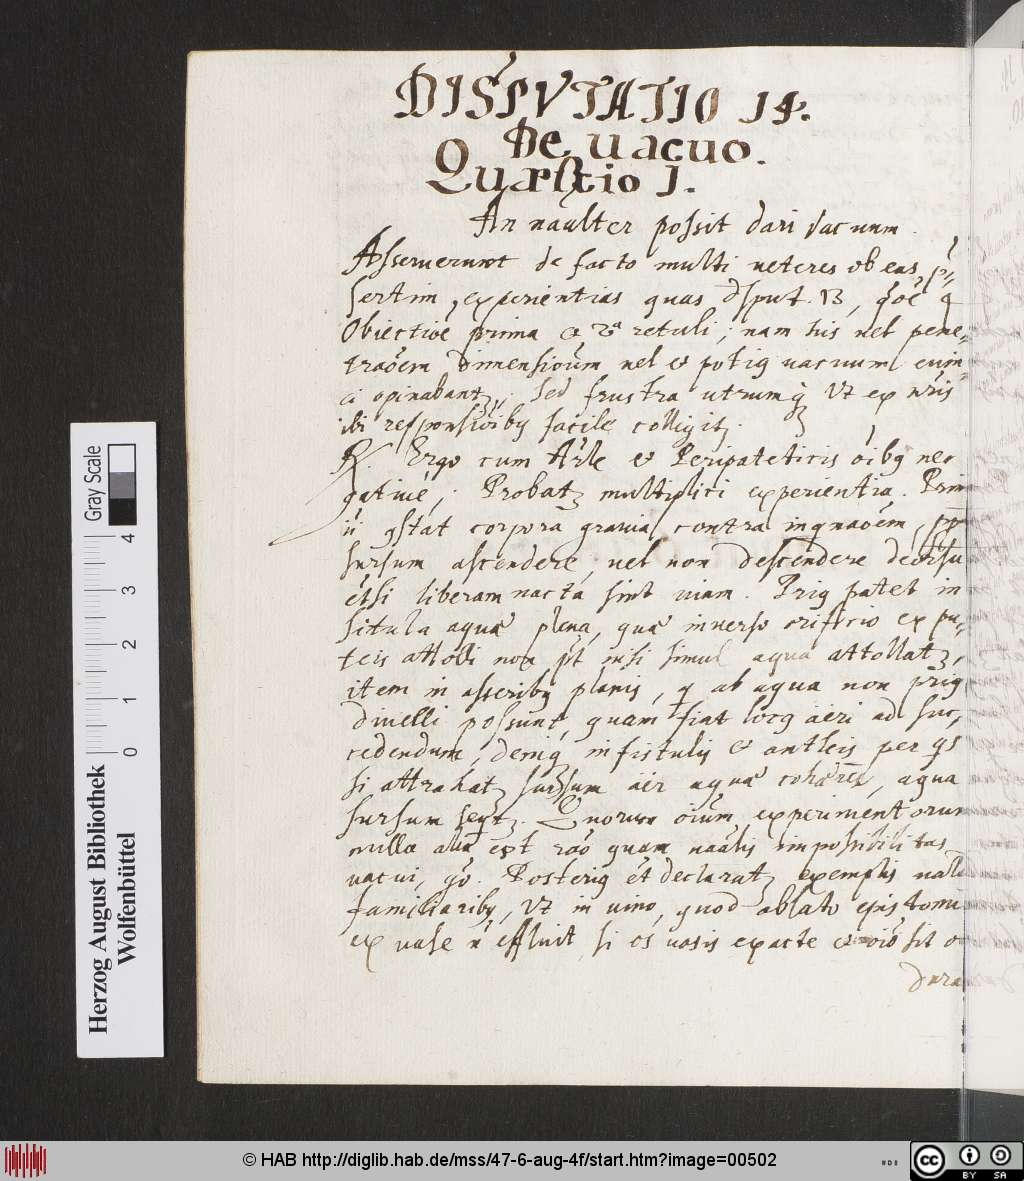 DISPVTATIO 14.
De uacuo.
Quæstio I.
An naulter possit dari vacuum.
Asseruerunt de facto multi ueteres ob eas
sertim, experientias quas disput. 13,
Obiectioē prima & 2ª retuli; nam his uel pene-
traōem dimensioūm uel & potiq uacuum euin-
ci opinabantꝫ. Sed frustra utrumq Vt ex nrīs
ibi responsioībq facile colligitꝫ.
R. Ergo cum Arle & Peripateticis oībq ne-
gatiuè; Probatꝫ multiplici experientia.
corpora grauia contra inqnaōem,
sursum ascendere, uel non descendere deorsu
etsi liberam nacta sint uiam. Priq patet in
situla aquâ plena, quæ inuerso orificio ex pu-
teis attolli non pt nisi simul aqua attollatꝫ,
item in asseribq planis, q ab aqua non priq
diuelli possunt, quam fiat locq aëri ad suc-
cedendum, deniq in fistulis & antleis per qs
si attrahatꝫ sursum aër aquæ cohærēs, aqua
sursum seqtꝫ. Quorum oīum experimentorum
nulla alia ext raō quam naālis impossibilitas
uacui, gō. Posteriq et declaratꝫ exemplis
familiaribq, Vt in uino, quod ablato epistomi
ex uase ñ effluit, si os uasis exacte
Herzog August Bibliothek
Wolfenbüttel
Gray Scale
0 1 2 3 4
© HAB http://diglib.hab.de/mss/47-6-aug-4f/start.htm?image=00502
cc BY SA